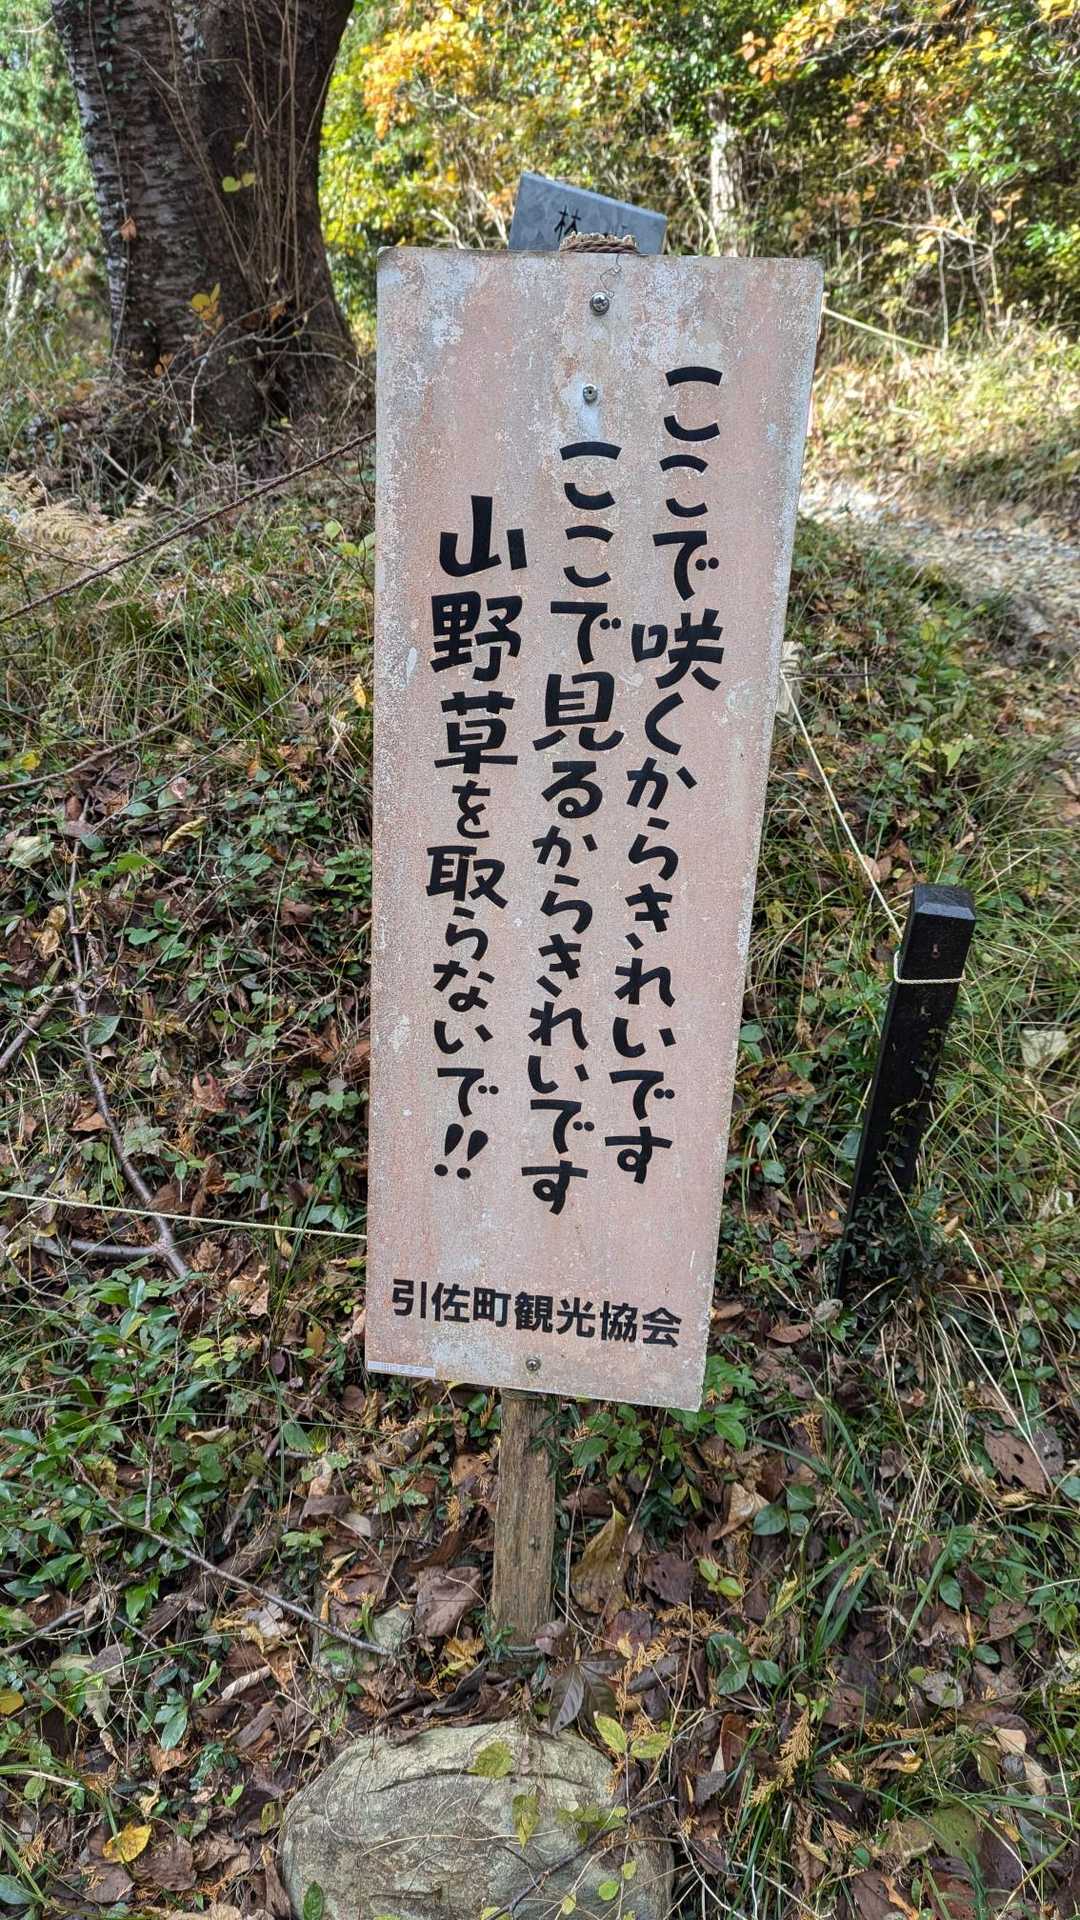 ここで咲くからきれいです
ここで見るからきれいです
山野草を取らないで!!
引佐町観光協会